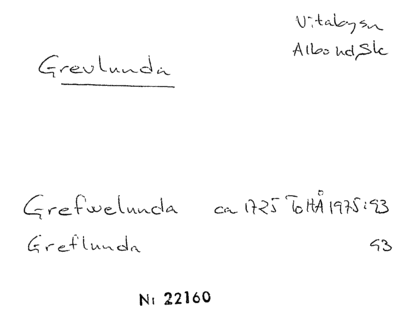 Vitabysn
Albo hd, Sk
Grevlunda
Grefwelunda ca 1725 ToHÅ 1975:93
Greflunda 93
N: 22160